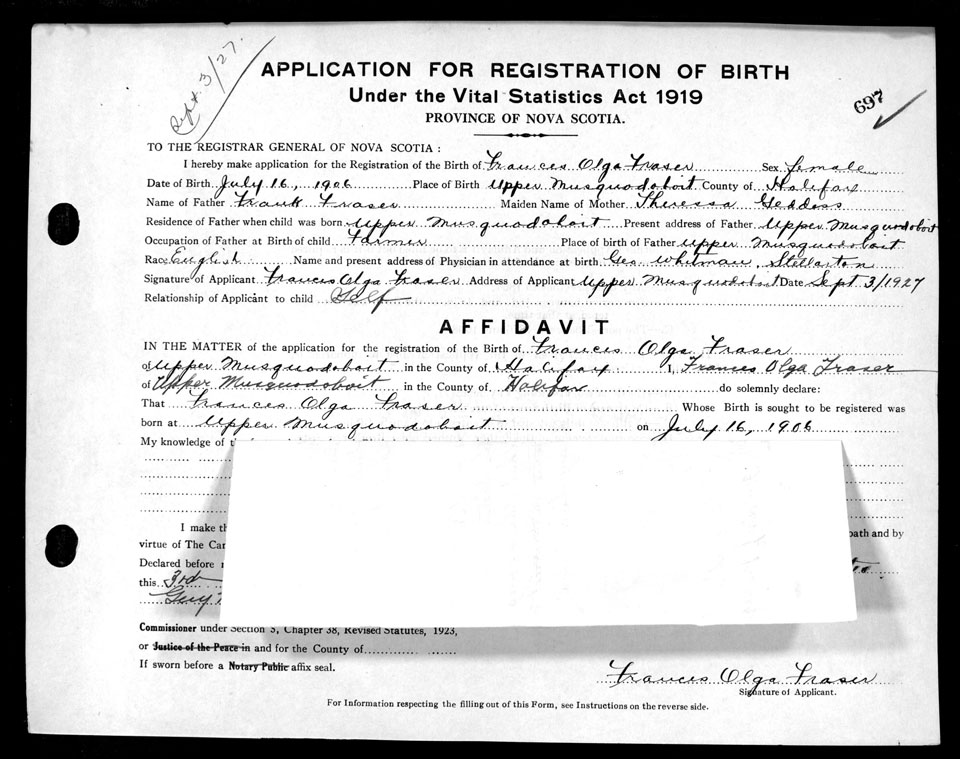 Sept. 3/27.
APPLICATION FOR REGISTRATION OF BIRTH
Under the Vital Statistics Act 1919
PROVINCE OF NOVA SCOTIA.
697
TO THE REGISTRAR GENERAL OF NOVA SCOTIA :
I hereby make application for the Registration of the Birth of Frances Olga Fraser Sex female
Date of Birth July 16, 1906 Place of Birth Upper Musquodoboit County of Halifax
Name of Father Frank Fraser Maiden Name of Mother Theressa Geddess
Residence of Father when child was born Upper Musquodoboit Present address of Father Upper Musquodoboit
Occupation of Father at Birth of child Farmer Place of birth of Father Upper Musquodoboit
Race English Name and present address of Physician in attendance at birth Geo Whitman, Stellarton
Signature of Applicant Frances Olga Fraser Address of Applicant Upper Musquodoboit Date Sept 3/1927
Relationship of Applicant to child Self
AFFIDAVIT
IN THE MATTER of the application for the registration of the Birth of Frances Olga Fraser
of Upper Musquodoboit in the County of Halifax I, Frances Olga Fraser
of Upper Musquodoboit in the County of Halifax do solemnly declare:
That Frances Olga Fraser Whose Birth is sought to be registered was
born at Upper Musquodoboit on July 16, 1906
My knowledge of
I make
virtue of The oath and by
Declared before
this 3rd
Guy
Commissioner under Section 5, Chapter 38, Revised Statutes, 1923,
or Justice of the Peace in and for the County of
If sworn before a Notary Public affix seal.
Frances Olga Fraser
Signature of Applicant.
For Information respecting the filling out of this Form, see Instructions on the reverse side.